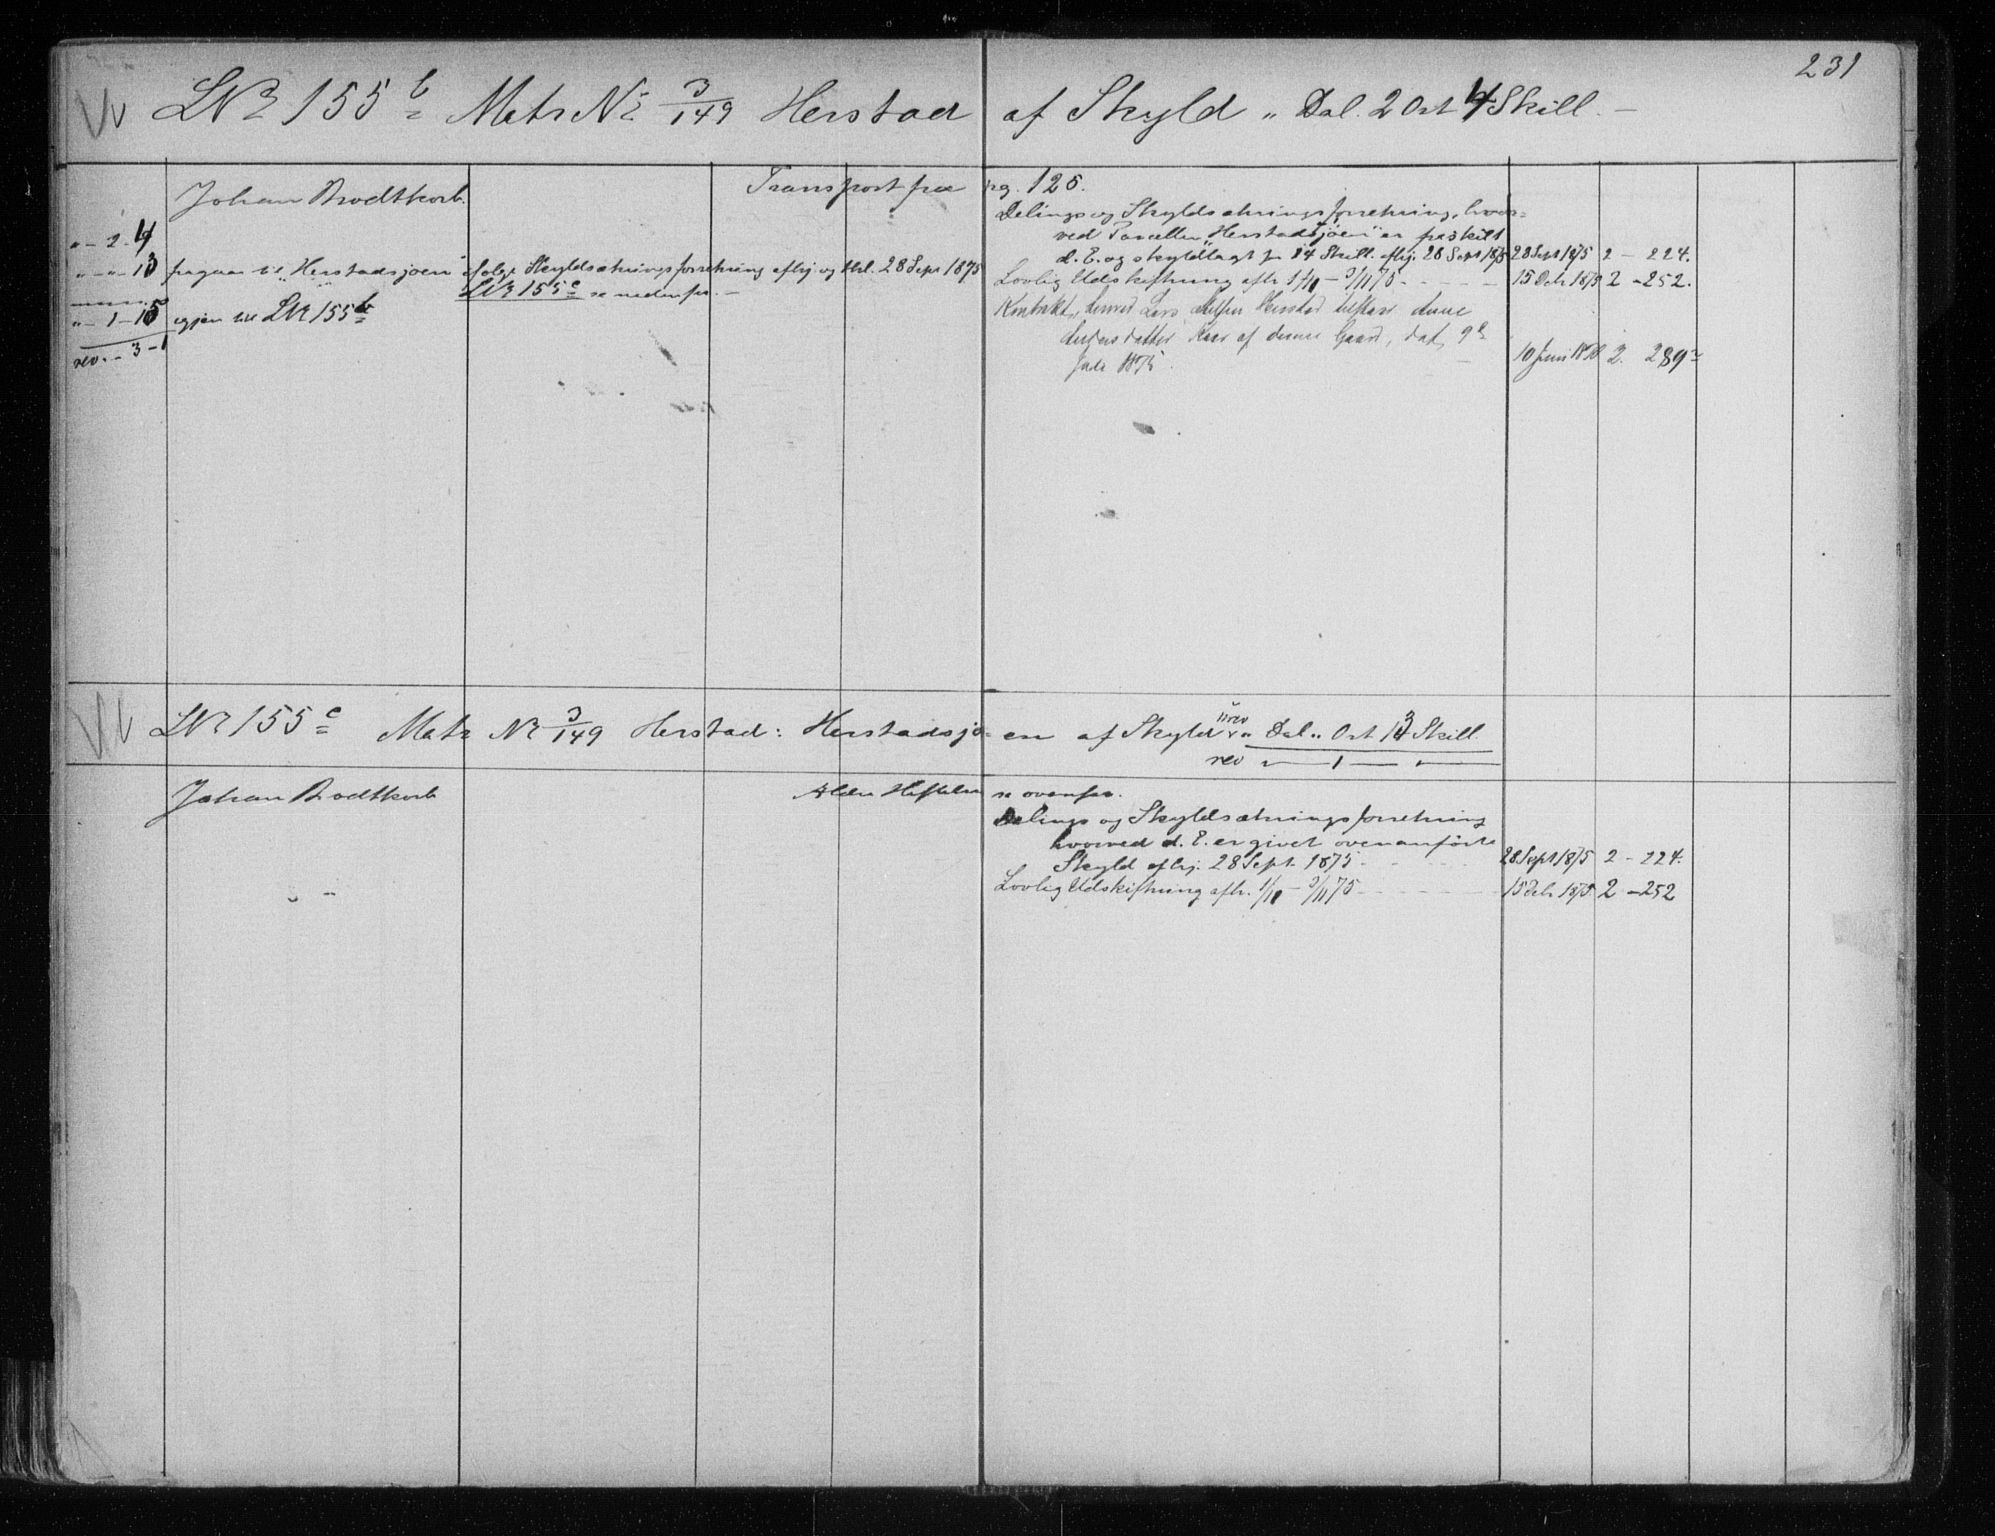 231
LNr 155 b Matr Nr 3/149 Herstad af Skyld " Dal. 2 Ort 4 Skill. —
Johan Brodtkorb.
Transport fra pag. 125.
" - 2 - 4
" - " - 13 fragaar til "Herstadsjøen" følge Skyldsætningsforretning afhj og thl. 28 Sept 1875
LNr 155 c se nedenfor. —
" - 1 - 15 igjen til LNr 155 b
rev. " - 3 - 1
Delings og Skyldsætningsforretning, hvor-
ved Parcellen "Herstadsjøen" er fraskilt
d. E. og skyldlagt for 14 Skill. afhj. 28 Sept 1875 28 Sept 1875 2 - 224.
Lovlig Udskiftning afh 1/10 - 3/11 75 - - - - 15 Octr 1875 2 - 252.
Kontrakt, hvorved Lars Herstad tilstaar
datter Kaar af denne Gaard, dat. 9
1875. 10 Juni 2. 289
LNr 155 c Matr Nr 3/149 Herstad: Herstadsjøen af Skyld " Dal " Ort 13 Skill
rev " — 1 — "
Johan Brodtkorb
Ældre Heftelser se ovenfor.
Delings og Skyldsætningsforretning
hvorved d. E. er givet ovenanførte
Skyld afhj. 28 Sept. 1875 - - - - 28 Sept 1875 2 - 224.
Lovlig Udskiftning afh. 1/10 - 3/11 75 - - - - 15 Octr 1875 2 - 252